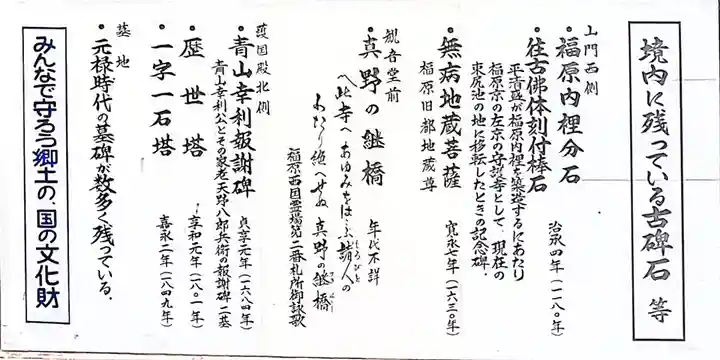 境内に残っている古碑石 等
山門西側
・福原内裡分石
・往古佛体刻付棒石 治承四年(一一八〇年)
平清盛が福原内裡を築造するにあたり
福原京の左京の守護寺として、現在の
東尻池の地に移転したときの記念碑、
・無病地蔵菩薩 寛永七年(一六三〇年)
福原旧都地蔵尊
観音堂前
・真野の継橋 年代不詳
へ此寺へあゆみをはこぶ諸人の
もろびと
わたり絶へせぬ 真野の継橋
つぎはし
福原西国霊場第二番札所御詠歌
護国殿北側
・青山幸利報謝碑 貞享元年(一六八四年)
青山幸利公とその家老天野八郎兵衛の報謝碑二基
・歴世塔 享和元年(一八〇一年)
・一字一石塔 嘉永二年(一八四九年)
墓地
・元禄時代の墓碑が数多く残っている、
みんなで守ろう郷土の、国の文化財